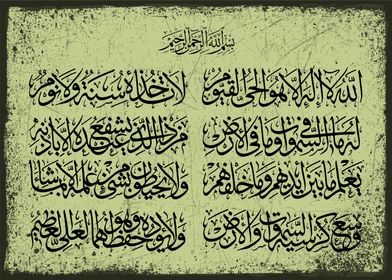 بسم الله الرحمن الرحيم
الله لا إله إلا هو الحي القيوم لا تأخذه سنة ولا نوم
له ما في السموات وما في الأرض من ذا الذي يشفع عنده إلا بإذنه
يعلم ما بين أيديهم وما خلفهم ولا يحيطون بشيء من علمه إلا بما شاء
وسع كرسيه السموات والأرض ولا يؤده حفظهما وهو العلي العظيم